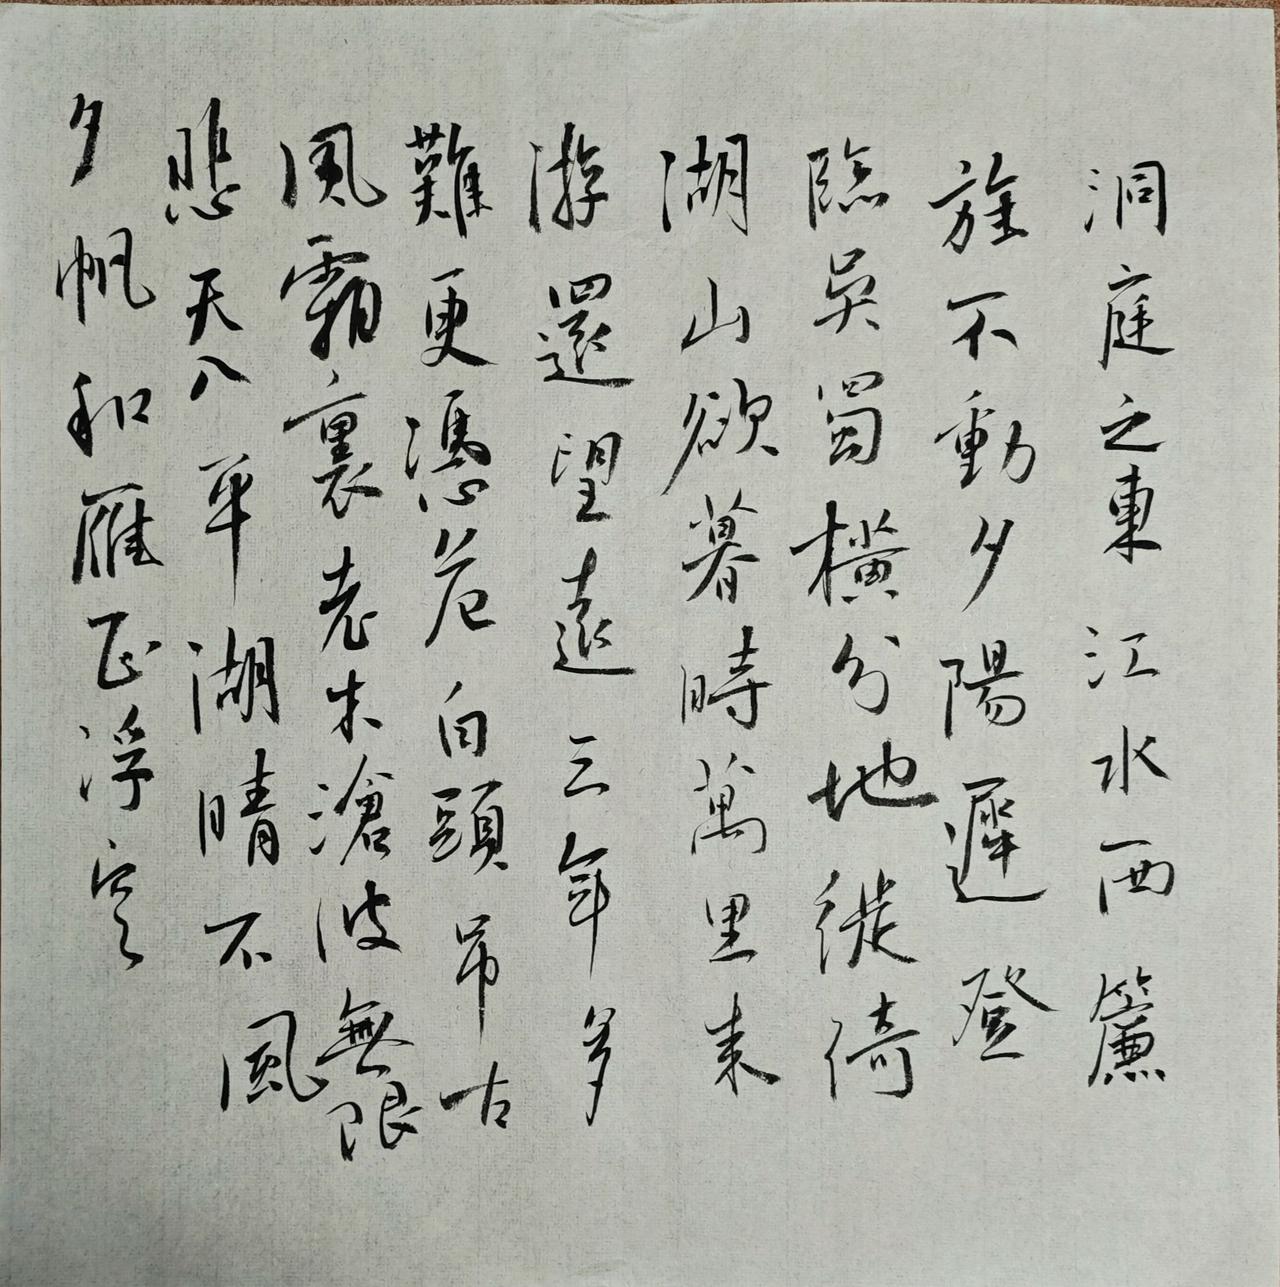 洞庭之東江水西簾
旌不動夕陽遲登
臨吳蜀橫分地徙倚
湖山欲暮時萬里來
游還望遠三年多
難更憑危白頭弔古
風霜裏老木滄波無限
悲天入平湖晴不風
夕帆和雁正浮空